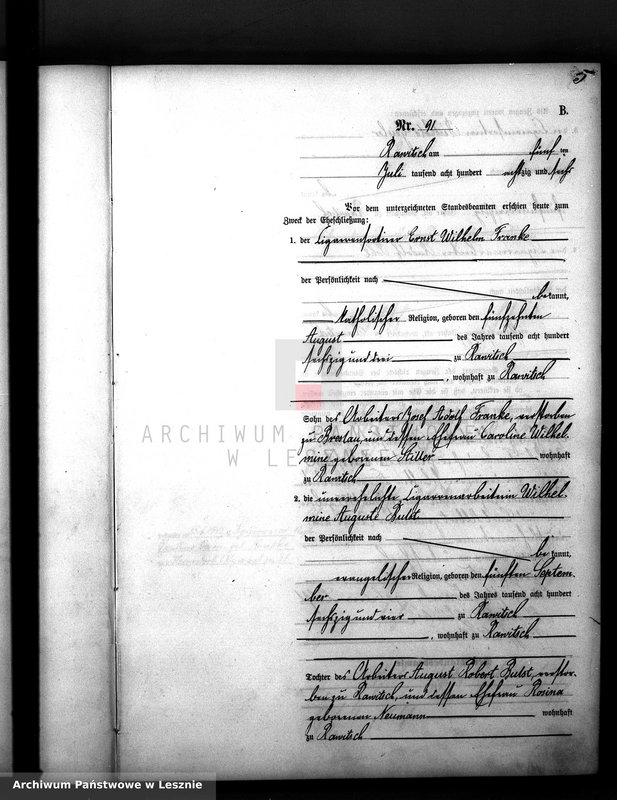 5
B.
Nr. 91
Rawitsch am fünf ten
Juli tausend acht hundert achtzig und sechs
Vor dem unterzeichneten Standesbeamten erschien heute zum
Zweck der Eheschließung:
1. der Cigarrensortirer Ernst Wilhelm Franke
der Persönlichkeit nach
be kannt,
katholischer Religion, geboren den fünfzehnten
August des Jahres tausend acht hundert
sechszig und drei zu Rawitsch
, wohnhaft zu Rawitsch
ARCHIWUM PAŃSTWOWE
W LESZNIE
Sohn des Arbeiters Josef Adolf Franke, verstorben
zu Breslau, und dessen Ehefrau Caroline Wilhel-
mine geborenen Stiller wohnhaft
zu Rawitsch
2. die unverehelichte Cigarrenarbeiterin Wilhel-
mine Auguste
der Persönlichkeit nach
be kannt,
evangelischer Religion, geboren den fünften Septem-
ber des Jahres tausend acht hundert
sechszig und vier zu Rawitsch
, wohnhaft zu Rawitsch
Tochter des Arbeiters August Robert verstor-
ben zu Rawitsch, und dessen Ehefrau Rosina
geborenen Neumann wohnhaft
zu Rawitsch
Archiwum Państwowe w Lesznie